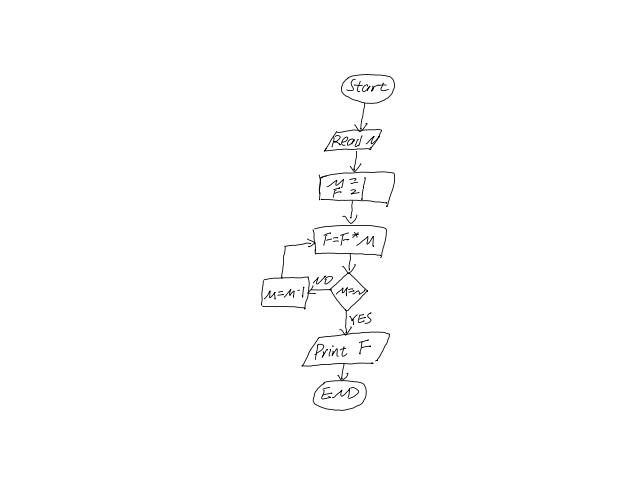 Start
Read N
M =
F = 1
F=F*M
NO
M=M-1
M=N
YES
Print F
END